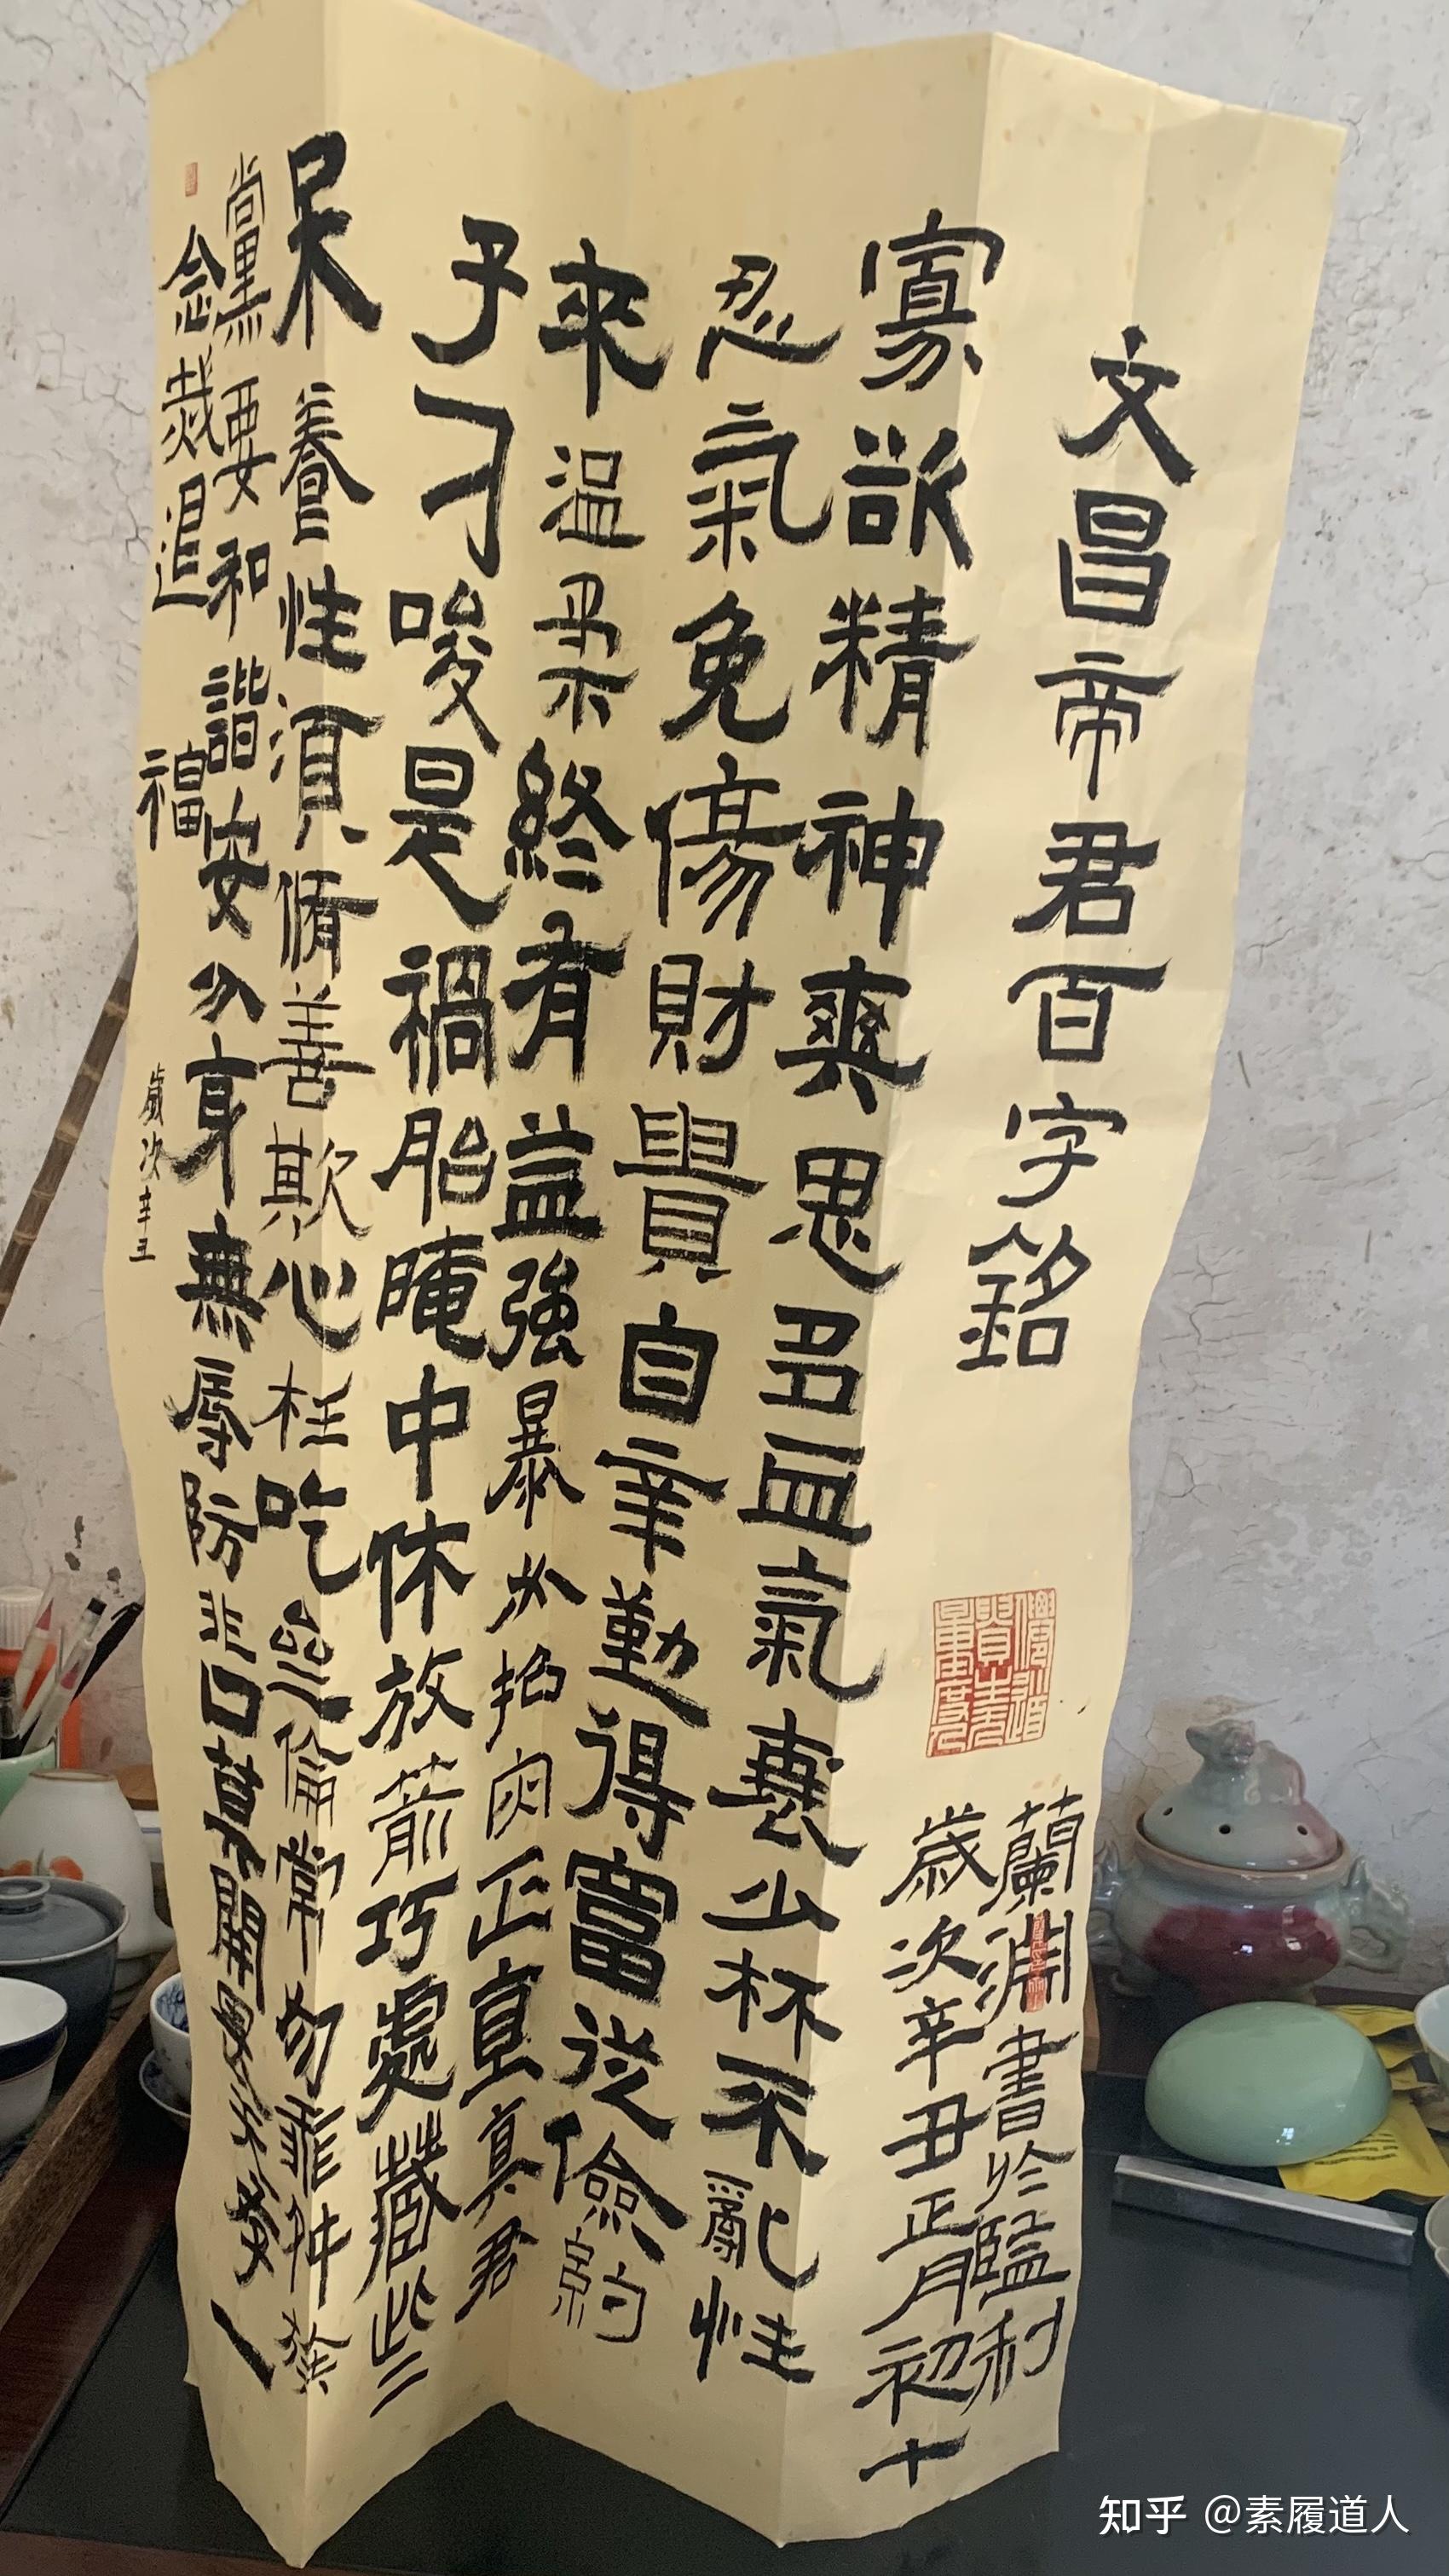 文昌帝君百字銘
蘭淵書於監利
歲次辛丑正月初十
寡欲精神爽思多血氣衰少杯不亂性
忍氣免傷財貴自辛勤得富從儉約
來温柔終有益強暴必招灾正直真君
子刁唆是禍胎晻中休放箭巧處藏些
呆養性須脩善欺心枉吃些倫常勿乖舛族
黨要和諧安分身無辱防非口莫開一
念烖退福
歲次辛丑
知乎 @素履道人